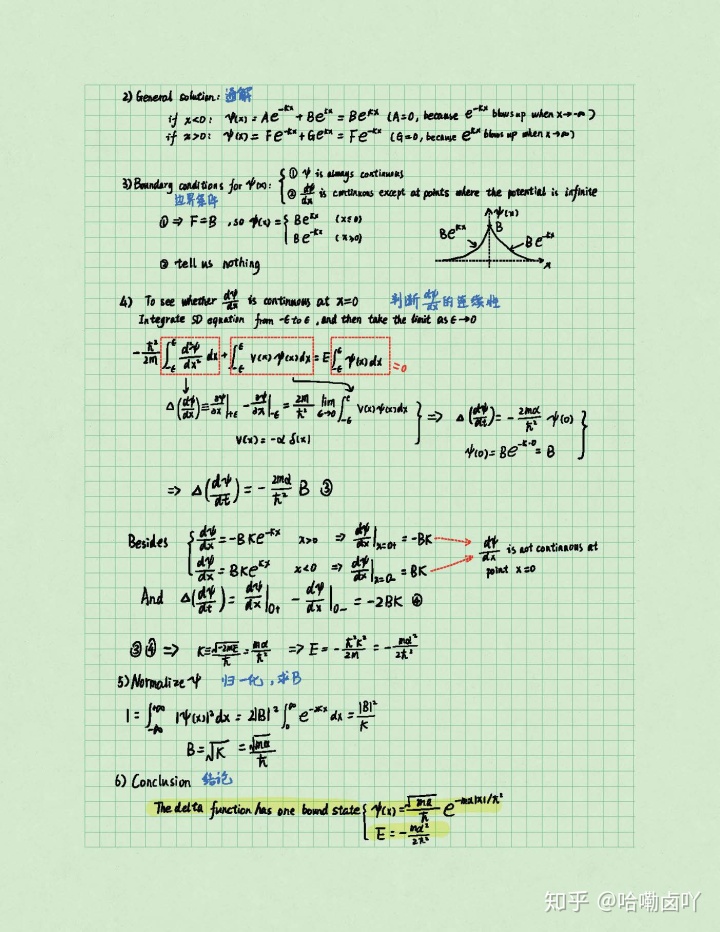 2) General solution: 通解
if x<0: ψ(x) = Ae^{-κx} + Be^{κx} = Be^{κx} (A=0, because e^{-κx} blows up when x→-∞)
if x>0: ψ(x) = Fe^{-κx} + Ge^{κx} = Fe^{-κx} (G=0, because e^{κx} blows up when x→∞)
3) Boundary conditions for ψ(x): { ① ψ is always continuous
边界条件 ② dψ/dx is continuous except at points where the potential is infinite
① ⇒ F=B, so ψ(x) = { Be^{κx} (x≤0)
Be^{-κx} (x>0)
ψ(x)
B
Be^{κx}
Be^{-κx}
x
② tell us nothing
4) To see whether dψ/dx is continuous at x=0 判断 dψ/dx 的连续性
Integrate SD equation from -ε to ε, and then take the limit as ε→0
-ħ²/2m ∫_{-ε}^{ε} d²ψ/dx² dx + ∫_{-ε}^{ε} V(x) ψ(x) dx = E ∫_{-ε}^{ε} ψ(x) dx
=0
Δ(dψ/dx) ≡ ∂ψ/∂x|_{+ε} - ∂ψ/∂x|_{-ε} = 2m/ħ² lim_{ε→0} ∫_{-ε}^{ε} V(x) ψ(x) dx
V(x) = -α δ(x)
} ⇒ Δ(dψ/dt) = -2mα/ħ² ψ(0)
ψ(0) = Be^{-κ·0} = B }
⇒ Δ(dψ/dt) = -2mα/ħ² B ③
Besides { dψ/dx = -BKe^{-κx} x>0 ⇒ dψ/dx|_{x=0+} = -BK
dψ/dx = BKe^{κx} x<0 ⇒ dψ/dx|_{x=0-} = BK
dψ/dx is not continuous at
point x=0
And Δ(dψ/dt) = dψ/dx|_{0+} - dψ/dx|_{0-} = -2BK ④
③④ ⇒ K ≡ √(-2mE)/ħ = mα/ħ² ⇒ E = -ħ²K²/2m = -mα²/2ħ²
5) Normalize ψ 归一化,求B
1 = ∫_{-∞}^{+∞} |ψ(x)|² dx = 2|B|² ∫_0^∞ e^{-2κx} dx = |B|²/K
B = √K = √(mα)/ħ
6) Conclusion 结论
The delta function has one bound state { ψ(x) = √(mα)/ħ e^{-mα|x|/ħ²}
E = -mα²/2ħ²
知乎 @哈嘞卤吖